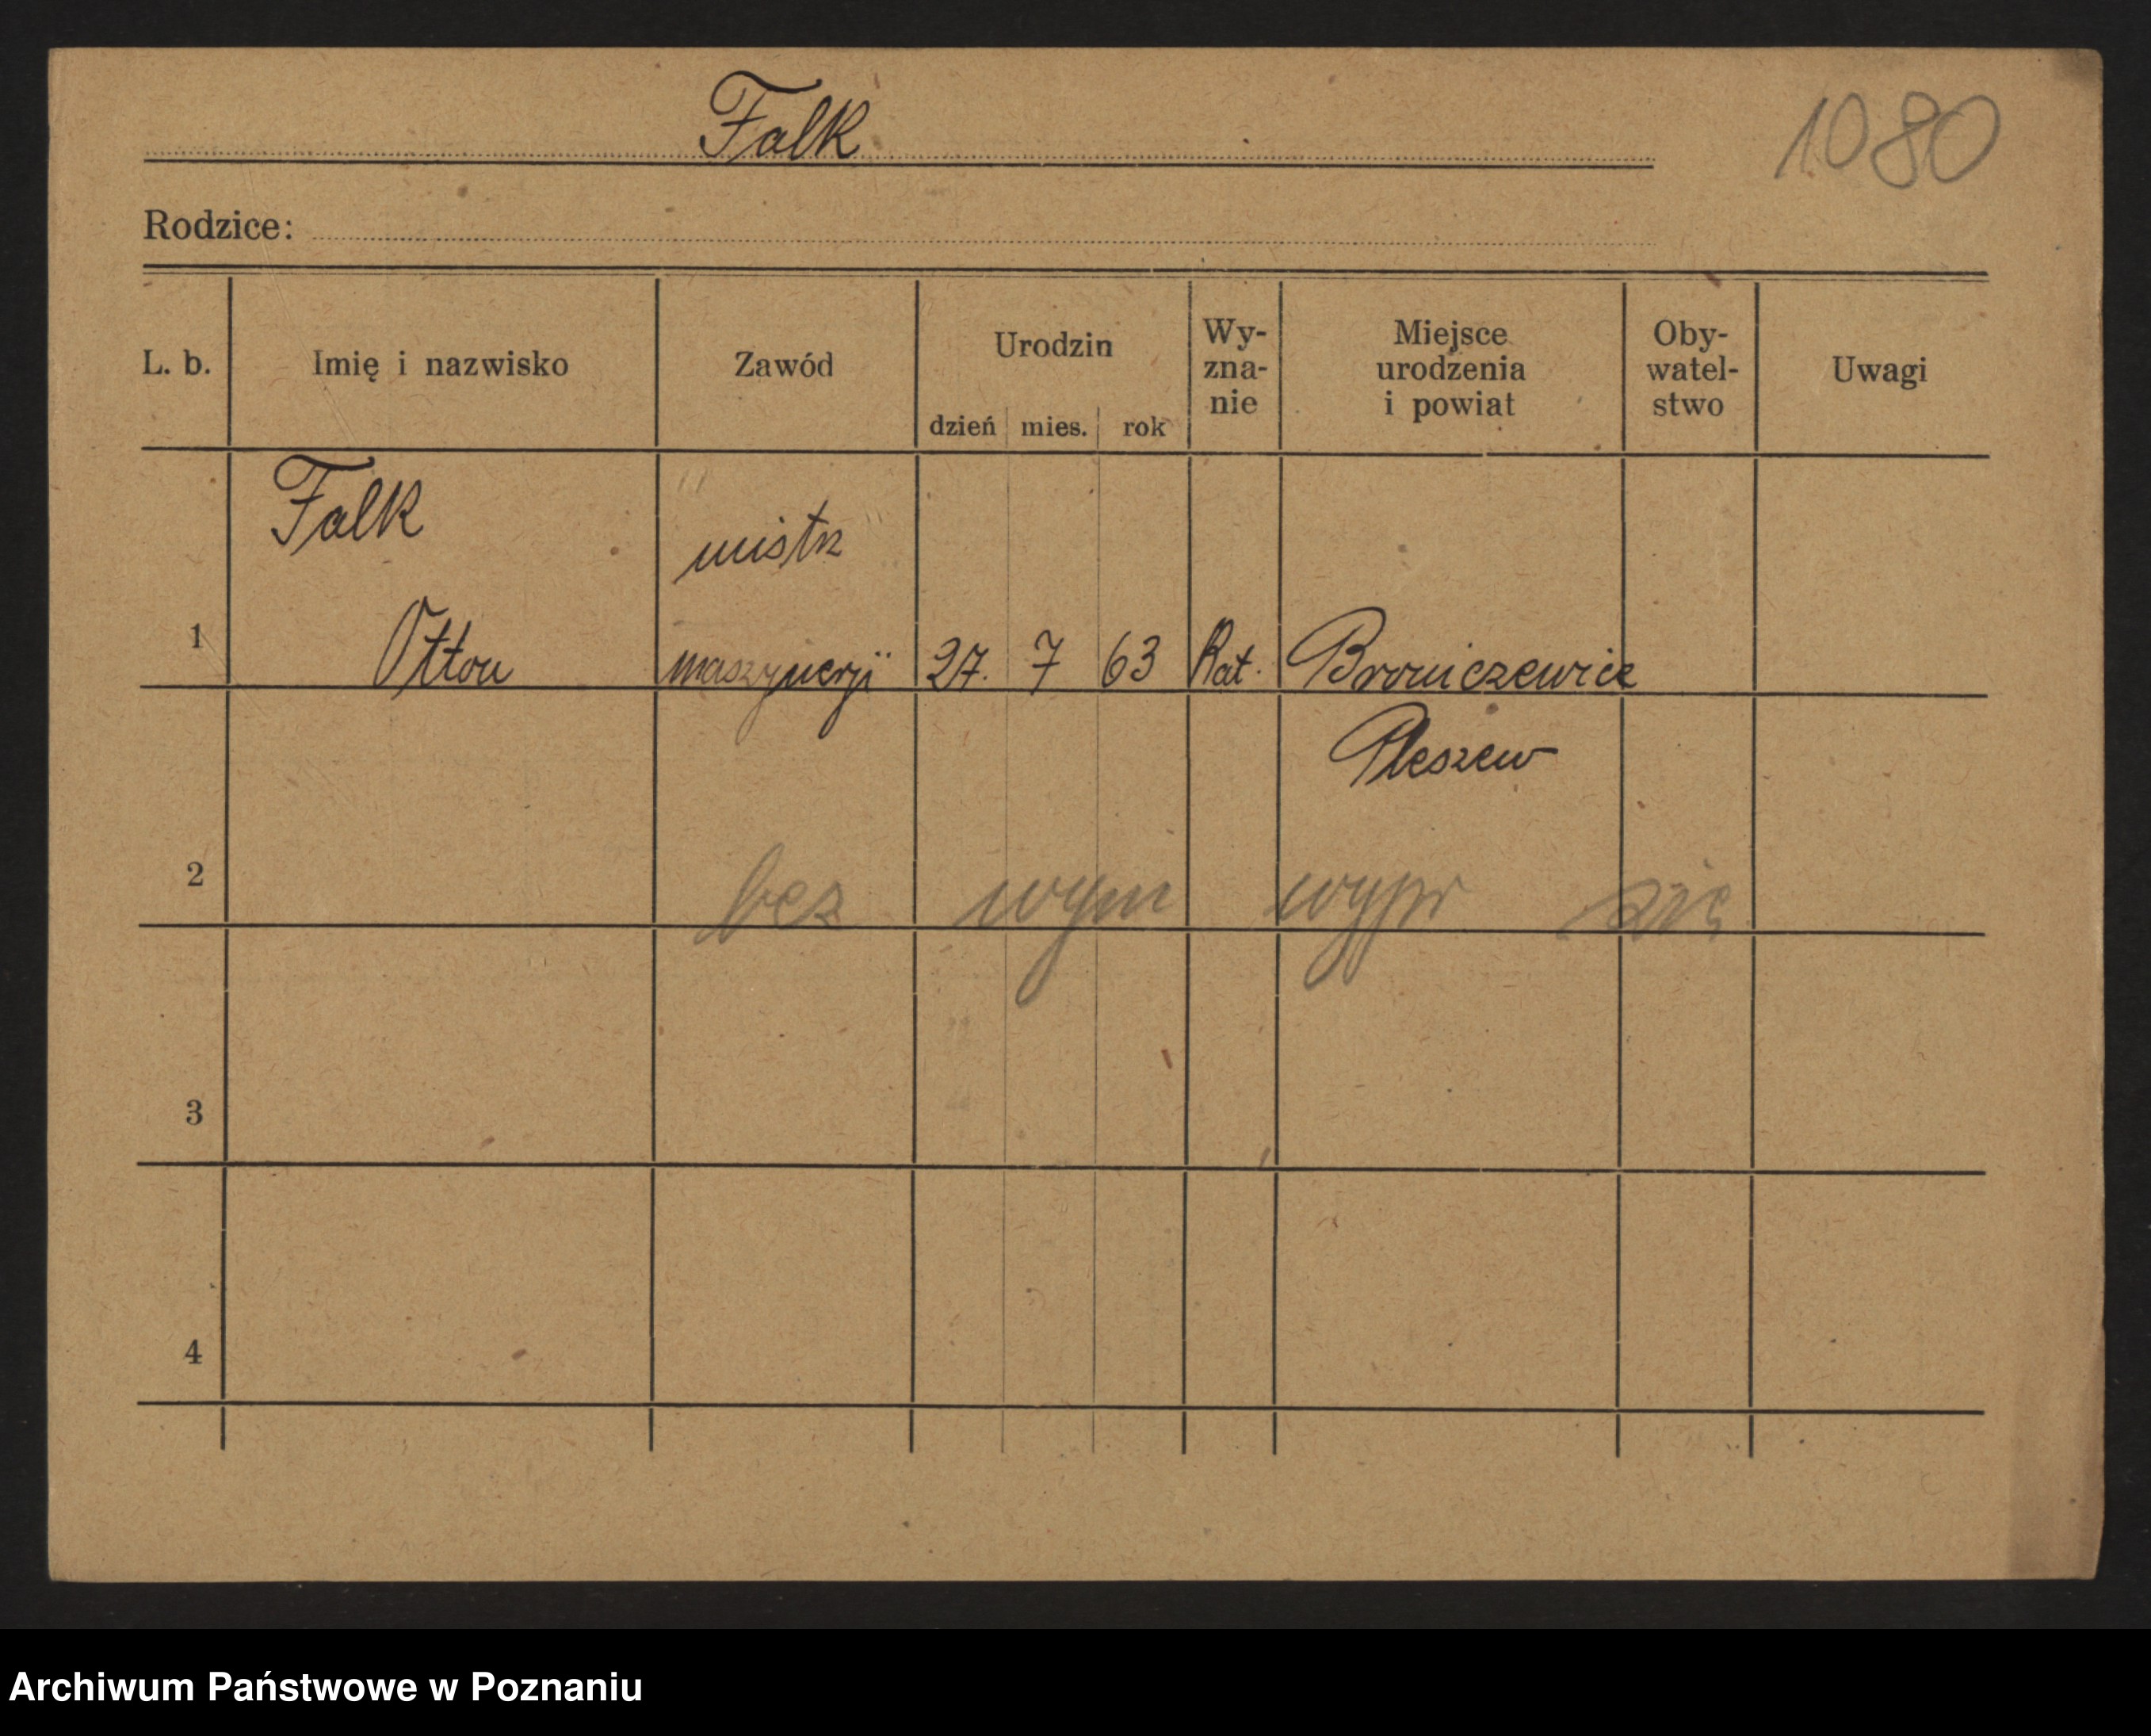 Falk
1080
Rodzice:
L. b.
Imię i nazwisko
Zawód
Urodzin
dzień mies. rok
Wy-
zna-
nie
Miejsce
urodzenia
i powiat
Oby-
watel-
stwo
Uwagi
Falk
mistrz
1 Otton maszynerji 27. 7 63 Kat. Broniczewice
Pleszew
2 bez wym wypr się
3
4
Archiwum Państwowe w Poznaniu